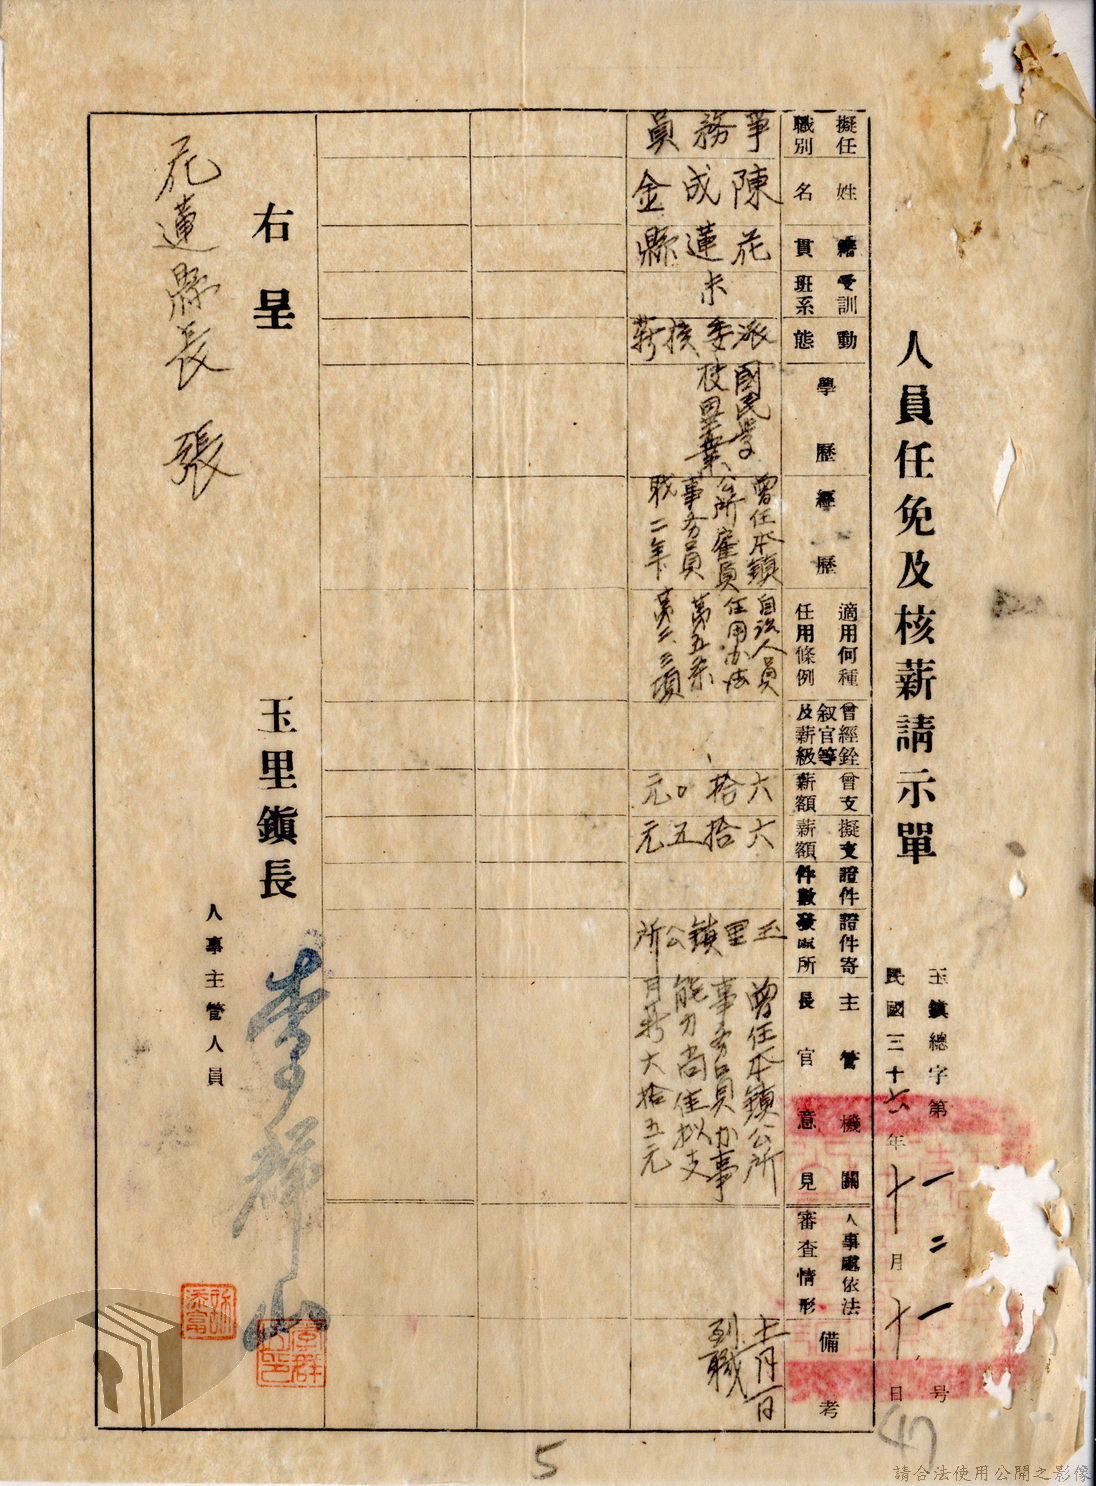 人員任免及核薪請示單
玉鎮總字第一二一号
民國三十六年十月十日
擬任職別
姓名
籍貫
受訓班系
動態
學歷
經歷
適用何種任用條例
曾經銓叙官等及薪級
曾支薪額
擬支薪額
證件件數
證件寄發處所
主管機關長官意見
人事處依法審查情形
備考
事務員
陳成金
花蓮縣
未
派委核薪
國民學
校畢業
曾任本鎮
公所雇員
事务員
職二年
自治人員
任用办法
第五条
第二三項
六拾 元
六拾五元
玉里鎮公所
曾任本鎮公所
事务員办事
能力尚佳拟支
月薪六拾五元
十一月一日
到職
右呈
花蓮縣長 張
玉里鎮長
李群山
人事主管人員
5
47
請合法使用公開之影像